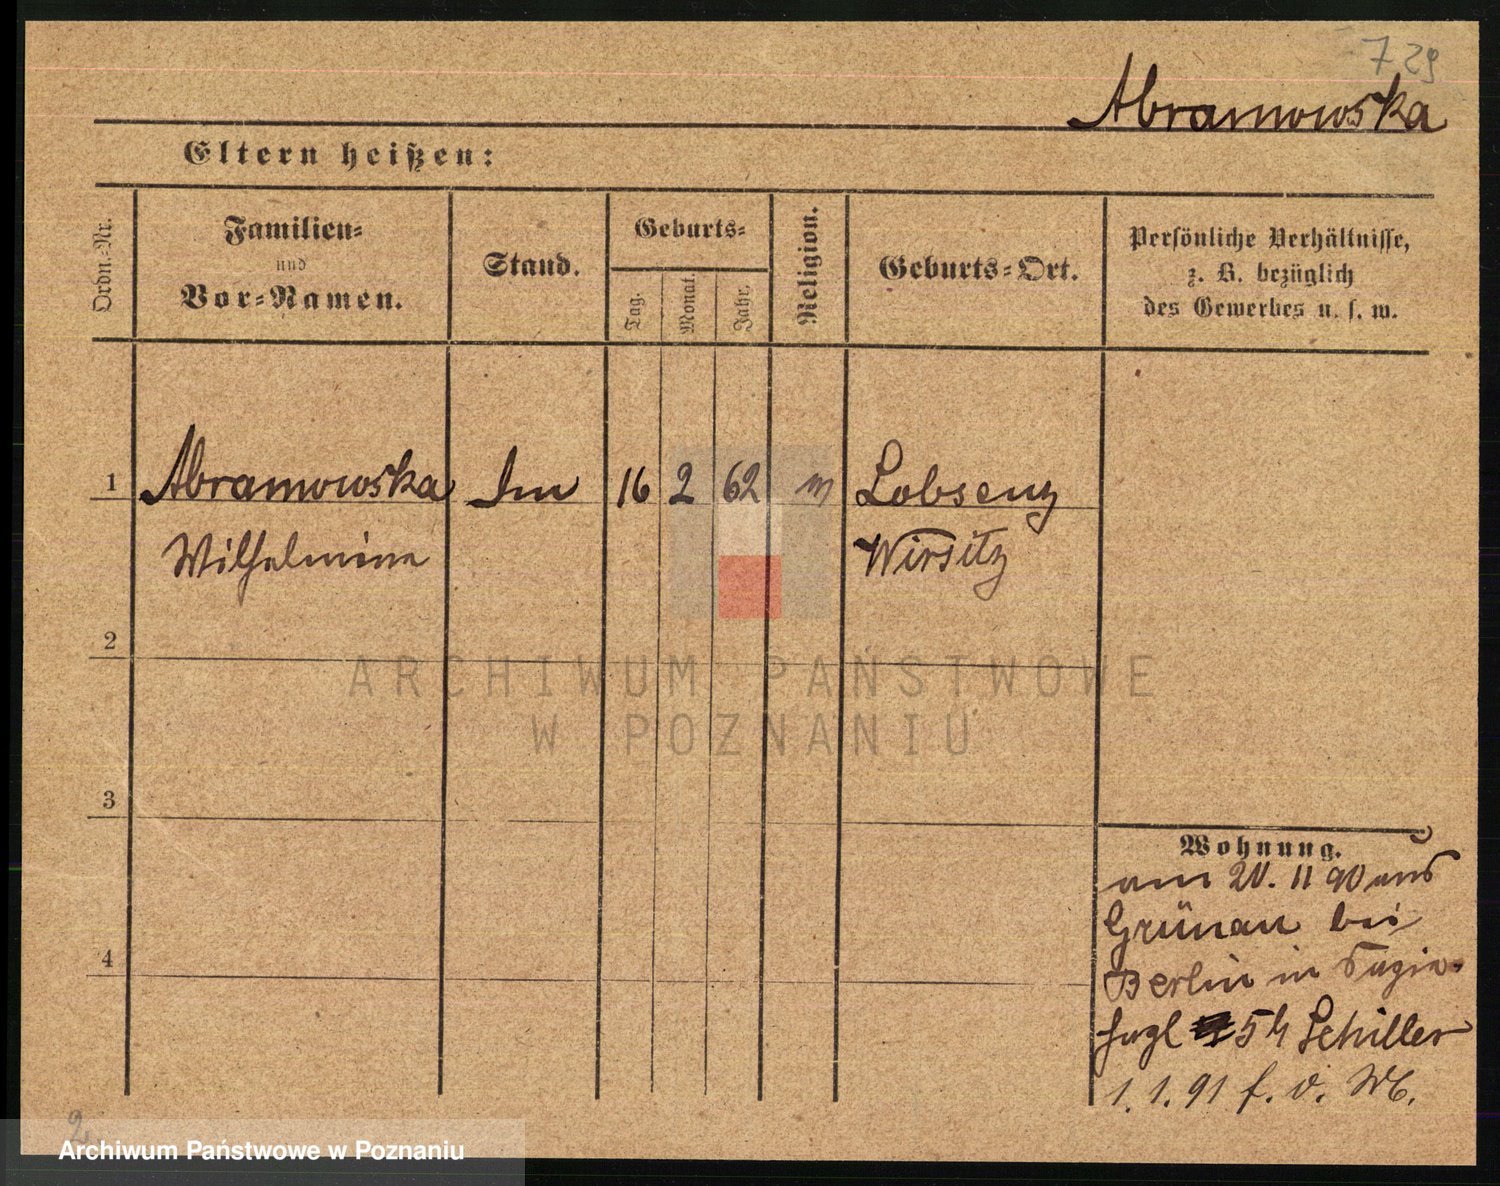 729
Abramowska
Eltern heißen:
Ordn.-Nr.
Familien-
und
Vor-Namen.
Stand.
Geburts-
Tag.
Monat.
Jahr.
Religion.
Geburts-Ort.
Persönliche Verhältnisse,
z. B. bezüglich
des Gewerbes u. s. w.
1 Abramowska 16 2 62 Lobsenz
Wilhelmine Wirsitz
2
ARCHIWUM PAŃSTWOWE
W POZNANIU
3
Wohnung.
am 20. 11 90 aus
Grünau bei
Berlin in
54 Schiller
4
1. 1. 91 f. v.
2
Archiwum Państwowe w Poznaniu